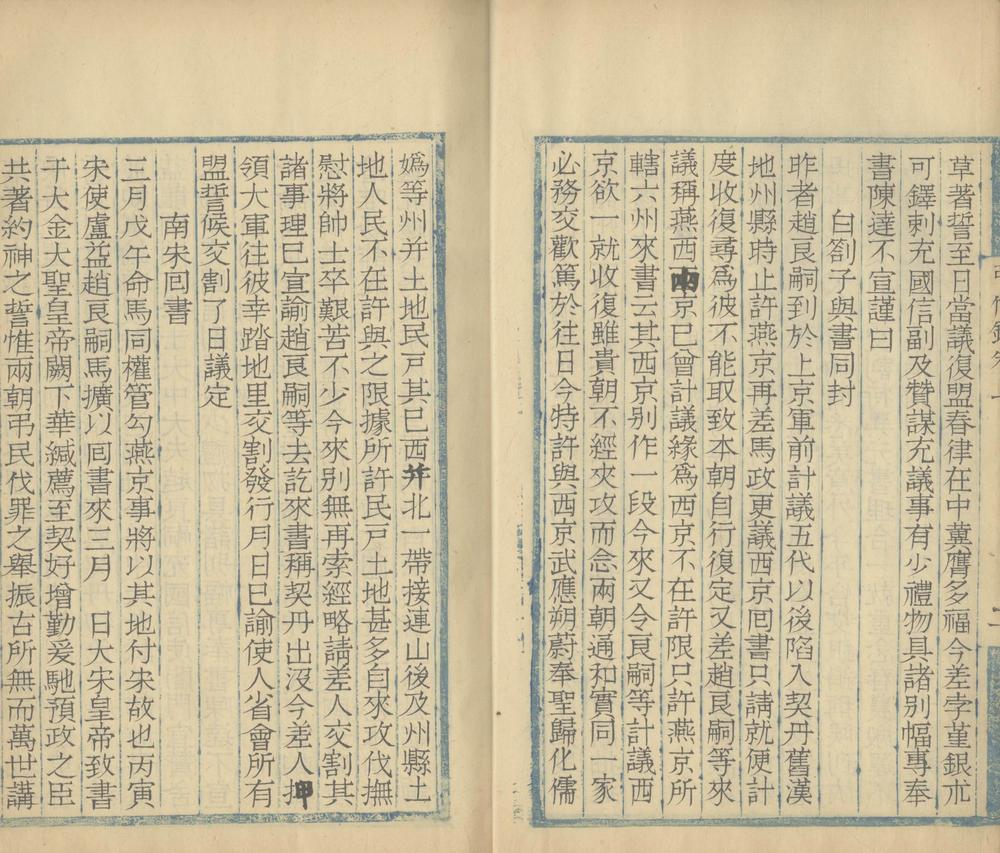 草著誓至日當議復盟春律在中冀膺多福今差孛堇銀朮
可鐸剌充國信副及贊謀充議事有少禮物具諸別幅專奉
書陳達不宣謹曰
白劄子與書同封
昨者趙良嗣到於上京軍前計議五代以後陷入契丹舊漢
地州縣時止許燕京再差馬政更議西京回書只請就便計
度收復尋爲彼不能取致本朝自行復定又差趙良嗣等來
議稱燕西京已曾計議緣爲西京不在許限只許燕京所
轄六州來書云其西京别作一段今來又令良嗣等計議西
京欲一就收復雖貴朝不經夾攻而念兩朝通和實同一家
必務交歡篤於往日今特許與西京武應朔蔚奉聖歸化儒
媯等州并土地民戸其已西并北一帶接連山後及州縣土
地人民不在許與之限據所許民戸土地甚多自來攻伐撫
慰將帥士卒艱苦不少今來别無再索經略請差人交割其
諸事理已宣諭趙良嗣等去訖來書稱契丹出沒今差人押
領大軍往彼幸踏地里交割發行月日已諭使人省會所有
盟誓候交割了日議定
南宋回書
三月戊午命馬同權管勾燕京事將以其地付宋故也丙寅
宋使盧益趙良嗣馬擴以回書來三月 日大宋皇帝致書
于大金大聖皇帝闕下華緘薦至契好增勤爰馳預政之臣
共著約神之誓惟兩朝弔民伐罪之舉振古所無而萬世講